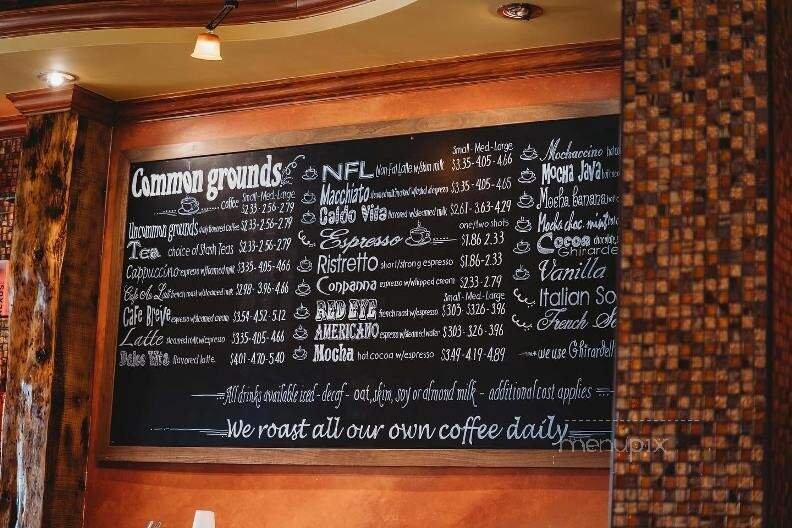 Common grounds
Small - Med - Large
coffee $2.33 - 2.56 - 2.79
Uncommon grounds daily flavored coffee $2.33 - 2.56 - 2.79
Tea choice of Stash Teas $2.33 - 2.56 - 2.79
Cappuccino espresso w/foamed milk $3.35 - 4.05 - 4.66
Cafe Au Lait french roast w/steamed milk $2.98 - 3.96 - 4.66
Cafe Breve espresso w/steamed cream $3.54 - 4.52 - 5.12
Latte steamed milk w/espresso $3.35 - 4.05 - 4.66
Dolce Vita flavored latte $4.01 - 4.70 - 5.40
Small - Med - Large
NFL Non Fat Latte w/skim milk $3.35 - 4.05 - 4.66
Macchiato $3.35 - 4.05 - 4.65
Caldo Vita flavored w/steamed milk $2.61 - 3.63 - 4.29
one/two shots
Espresso $1.86 2.33
Ristretto short/strong espresso $1.86 - 2.33
Conpanna espresso w/whipped cream $2.33 - 2.79
Small - Med - Large
RED EYE french roast w/espresso $3.05 - 3.26 - 3.96
AMERICANO espresso w/steamed water $3.03 - 3.26 - 3.96
Mocha hot cocoa w/espresso $3.49 - 4.19 - 4.89
Mochaccino
Mocha Java
Mocha banana
Mocha choc. mint
Cocoa chocolate,
Ghirardel
Vanilla
Italian So
French So
we use Ghirardell
All drinks available iced - decaf - oat, skim, soy or almond milk - additional cost applies
We roast all our own coffee daily
menupix